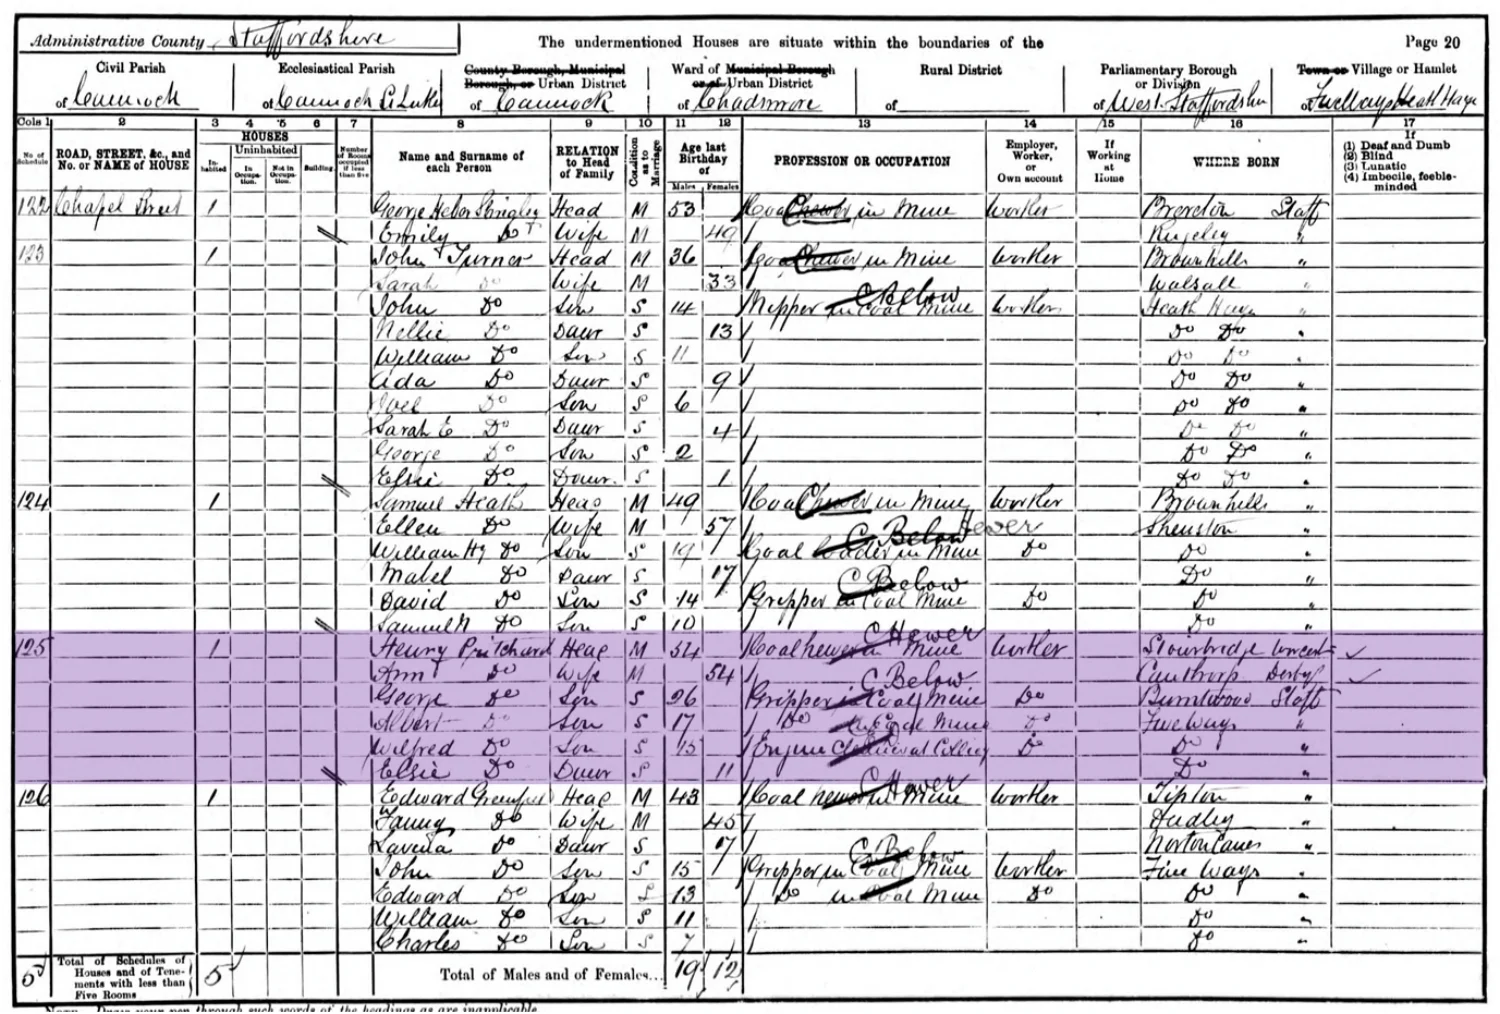 Administrative County Staffordshire The undermentioned Houses are situate within the boundaries of the Page 20
Civil Parish Ecclesiastical Parish County Borough, Municipal Borough, or Urban District Ward of Municipal Borough or of Urban District Rural District Parliamentary Borough or Division Town or Village or Hamlet
of Cannock of Cannock St Lukes of Cannock of Chadsmore of of West Staffordshire of Five Ways Heath Hayes
Cols 1 2 3 4 5 6 7 8 9 10 11 12 13 14 15 16 17
No. of Schedule ROAD, STREET, &c., and No. or NAME of HOUSE HOUSES Inhabited Uninhabited In Occupation. Not in Occupation. Building. Number of Rooms occupied if less than five Name and Surname of each Person RELATION to Head of Family Condition as to Marriage Age last Birthday of Males Females PROFESSION OR OCCUPATION Employer, Worker, or Own account If Working at Home WHERE BORN If (1) Deaf and Dumb (2) Blind (3) Lunatic (4) Imbecile, feeble-minded
122 Chapel Street 1 George Heber Head M 53 Coal hewer in Mine worker Brereton Staff
Emily Do Wife M 49 Rugeley "
123 1 John Turner Head M 36 Coal hewer in Mine worker Brownhills "
Sarah Do Wife M 33 Walsall "
John Do Son S 14 in Coal Mine C Below worker Heath Hayes
Nellie Do Daur S 13 Do Do "
William Do Son S 11 Do Do "
Ada Do Daur S 9 Do Do "
Joel Do Son S 6 Do Do "
Sarah E Do Daur S 4 Do Do "
George Do Son S 2 Do Do "
Elsie Do Daur S 1 Do Do "
124 1 Samuel Heath Head M 49 Coal hewer in Mine worker Brownhills "
Ellen Do Wife M 57 Shenston "
William Hy Do Son S 19 Coal loader in Mine C Below Hewer Do Do "
Mabel Do Daur S 17 Do "
David Do Son S 14 Gripper in Coal Mine C Below Do Do "
Samuel N Do Son S 10 Do "
125 1 Henry Pritchard Head M 54 Coal hewer in Mine C Hewer worker Stourbridge Worcest
Ann Do Wife M 54 Derby
George Do Son S 26 Gripper in Coal Mine C Below Do Burntwood Staff
Albert Do Son S 17 Do in Coal Mine Do Five Ways "
Wilfred Do Son S 15 Engine at Colliery Do Do "
Elsie Do Daur S 11 Do "
126 1 Edward Head M 43 Coal hewer in Mine C Hewer worker Tipton "
Fanny Do Wife M 45 "
Lavinia Do Daur S 17 Norton Canes "
John Do Son S 15 Gripper in Coal Mine C Below worker Five Ways "
Edward Do Son S 13 Do in Coal Mine Do Do "
William Do Son S 11 Do "
Charles Do Son S 7 Do "
5 Total of Schedules of Houses and of Tenements with less than Five Rooms 5 Total of Males and of Females... 19 12
NOTE—Draw your pen through such words of the headings as are inapplicable.